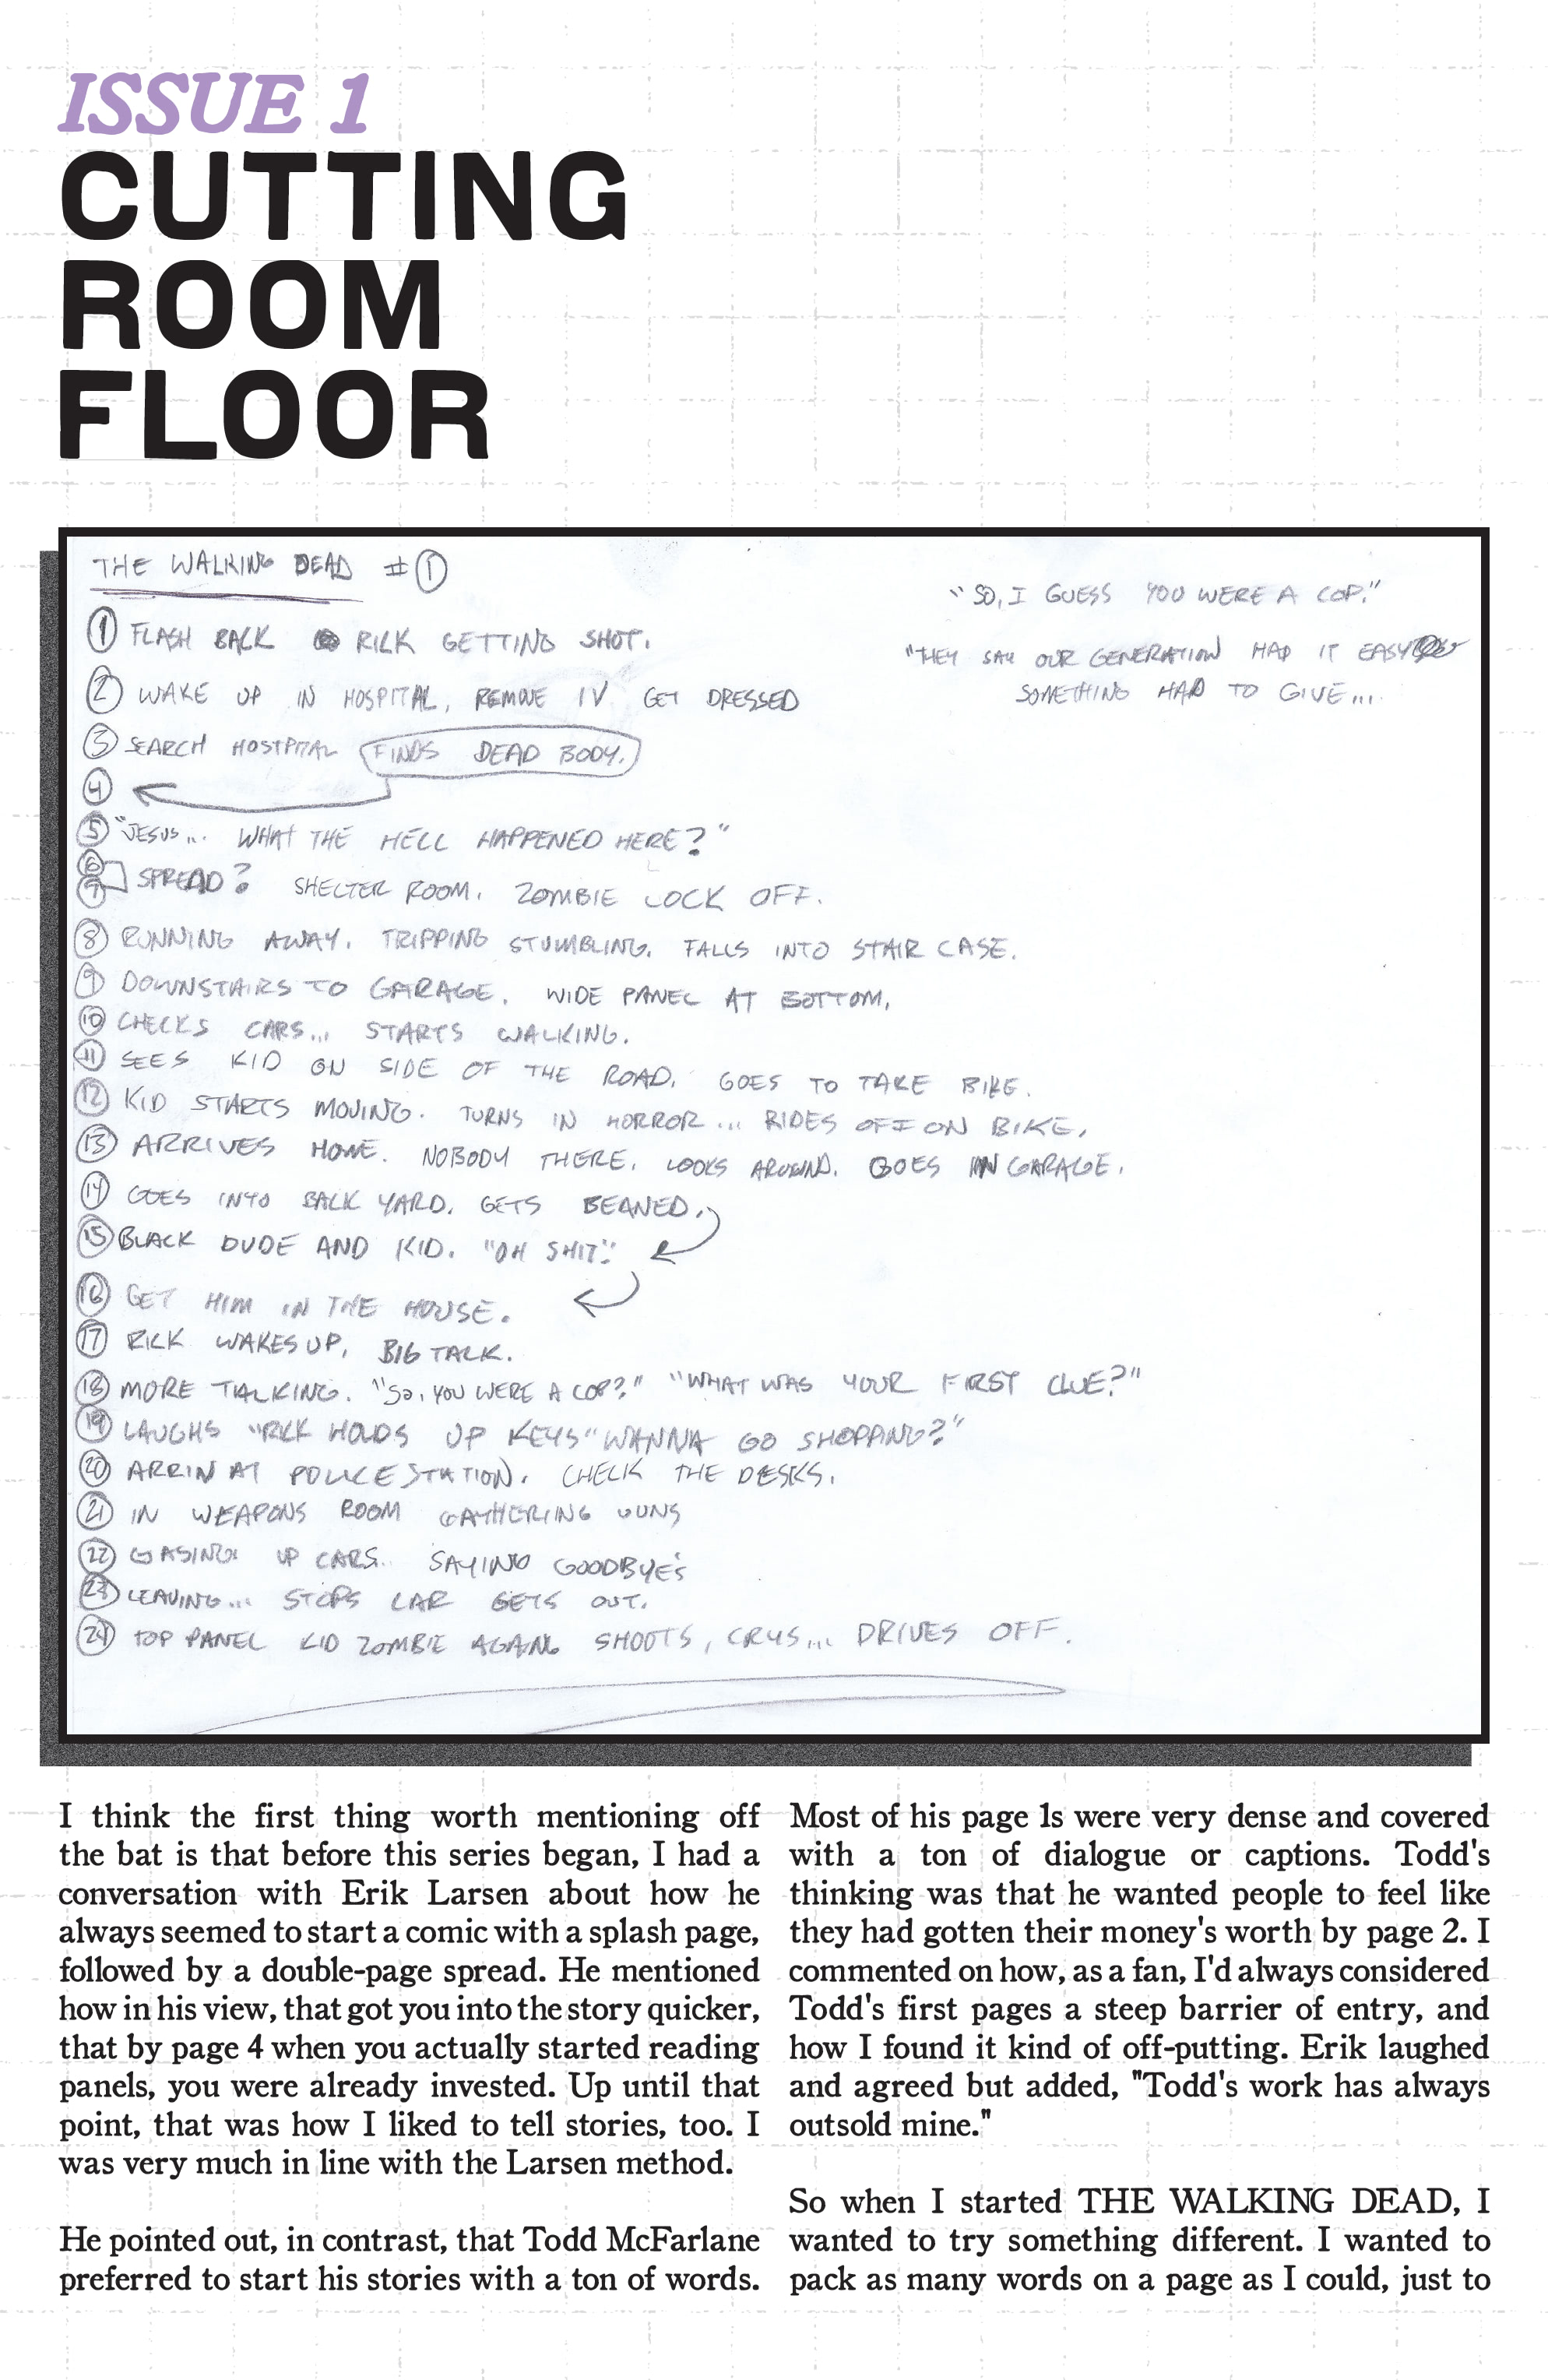 ISSUE 1
CUTTING
ROOM
FLOOR
THE WALKING DEAD #1
"SO, I GUESS YOU WERE A COP."
"THEY SAY OUR GENERATION HAD IT EASY
SOMETHING HAD TO GIVE...
1 FLASH BACK RICK GETTING SHOT.
2 WAKE UP IN HOSPITAL, REMOVE IV GET DRESSED
3 SEARCH HOSTPITAL FINDS DEAD BODY.
4
5 "JESUS... WHAT THE HELL HAPPENED HERE?"
6
7 SPREAD? SHELTER ROOM. ZOMBIE LOCK OFF.
8 RUNNING AWAY. TRIPPING STUMBLING. FALLS INTO STAIR CASE.
9 DOWNSTAIRS TO GARAGE. WIDE PANEL AT BOTTOM.
10 CHECKS CARS... STARTS WALKING.
11 SEES KID ON SIDE OF THE ROAD. GOES TO TAKE BIKE.
12 KID STARTS MOVING. TURNS IN HORROR... RIDES OFF ON BIKE.
13 ARRIVES HOME. NOBODY THERE. LOOKS AROUND. GOES IN GARAGE.
14 GOES INTO BACK YARD. GETS BEANED.
15 BLACK DUDE AND KID. "OH SHIT."
16 GET HIM IN THE HOUSE.
17 RICK WAKES UP, BIG TALK.
18 MORE TALKING. "SO, YOU WERE A COP?" "WHAT WAS YOUR FIRST CLUE?"
19 LAUGHS "RICK HOLDS UP KEYS "WANNA GO SHOPPING?"
20 ARRIN AT POLICE STATION. CHECK THE DESKS.
21 IN WEAPONS ROOM GATHERING GUNS
22 GASING UP CARS. SAYING GOODBYE'S
23 LEAVING... STOPS CAR GETS OUT.
24 TOP PANEL KID ZOMBIE AGAING SHOOTS, CRYS... DRIVES OFF.
I think the first thing worth mentioning off
the bat is that before this series began, I had a
conversation with Erik Larsen about how he
always seemed to start a comic with a splash page,
followed by a double-page spread. He mentioned
how in his view, that got you into the story quicker,
that by page 4 when you actually started reading
panels, you were already invested. Up until that
point, that was how I liked to tell stories, too. I
was very much in line with the Larsen method.
He pointed out, in contrast, that Todd McFarlane
preferred to start his stories with a ton of words.
Most of his page 1s were very dense and covered
with a ton of dialogue or captions. Todd's
thinking was that he wanted people to feel like
they had gotten their money's worth by page 2. I
commented on how, as a fan, I'd always considered
Todd's first pages a steep barrier of entry, and
how I found it kind of off-putting. Erik laughed
and agreed but added, "Todd's work has always
outsold mine."
So when I started THE WALKING DEAD, I
wanted to try something different. I wanted to
pack as many words on a page as I could, just to